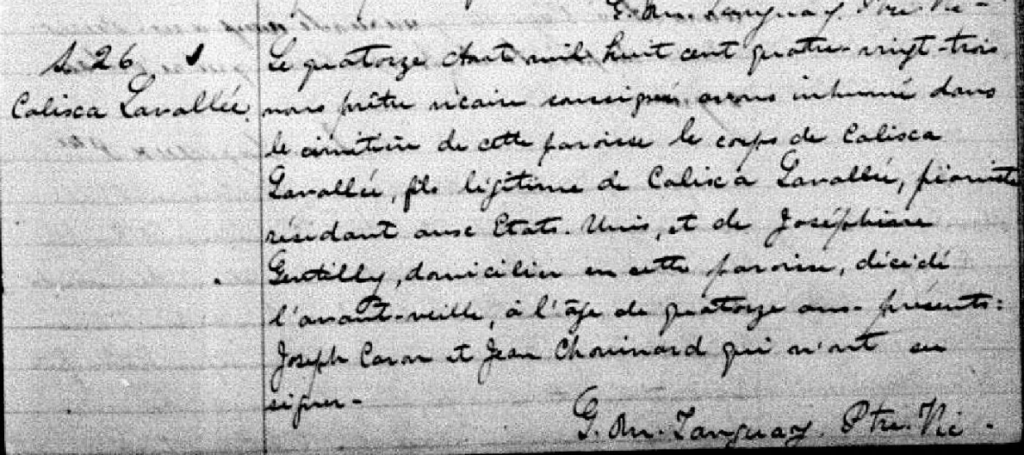 G. M. Tanguay, Ptre. Vic -
S. 26
Calixa Lavallée.
Le quatorze Août mil huit cent quatre-vingt-trois
nous prêtre vicaire soussigné avons inhumé dans
le cimetière de cette paroisse le corps de Calixa
Lavallée, fils légitime de Calixa Lavallée, pianiste
résidant aux Etats-Unis, et de Joséphine
Gentilly, domicilier en cette paroisse, décédé
l'avant-veille, à l'âge de quatorze ans - présents:
Joseph Caron et Jean Chouinard qui n'ont su
signer -
G. M. Tanguay, Ptre. Vic -